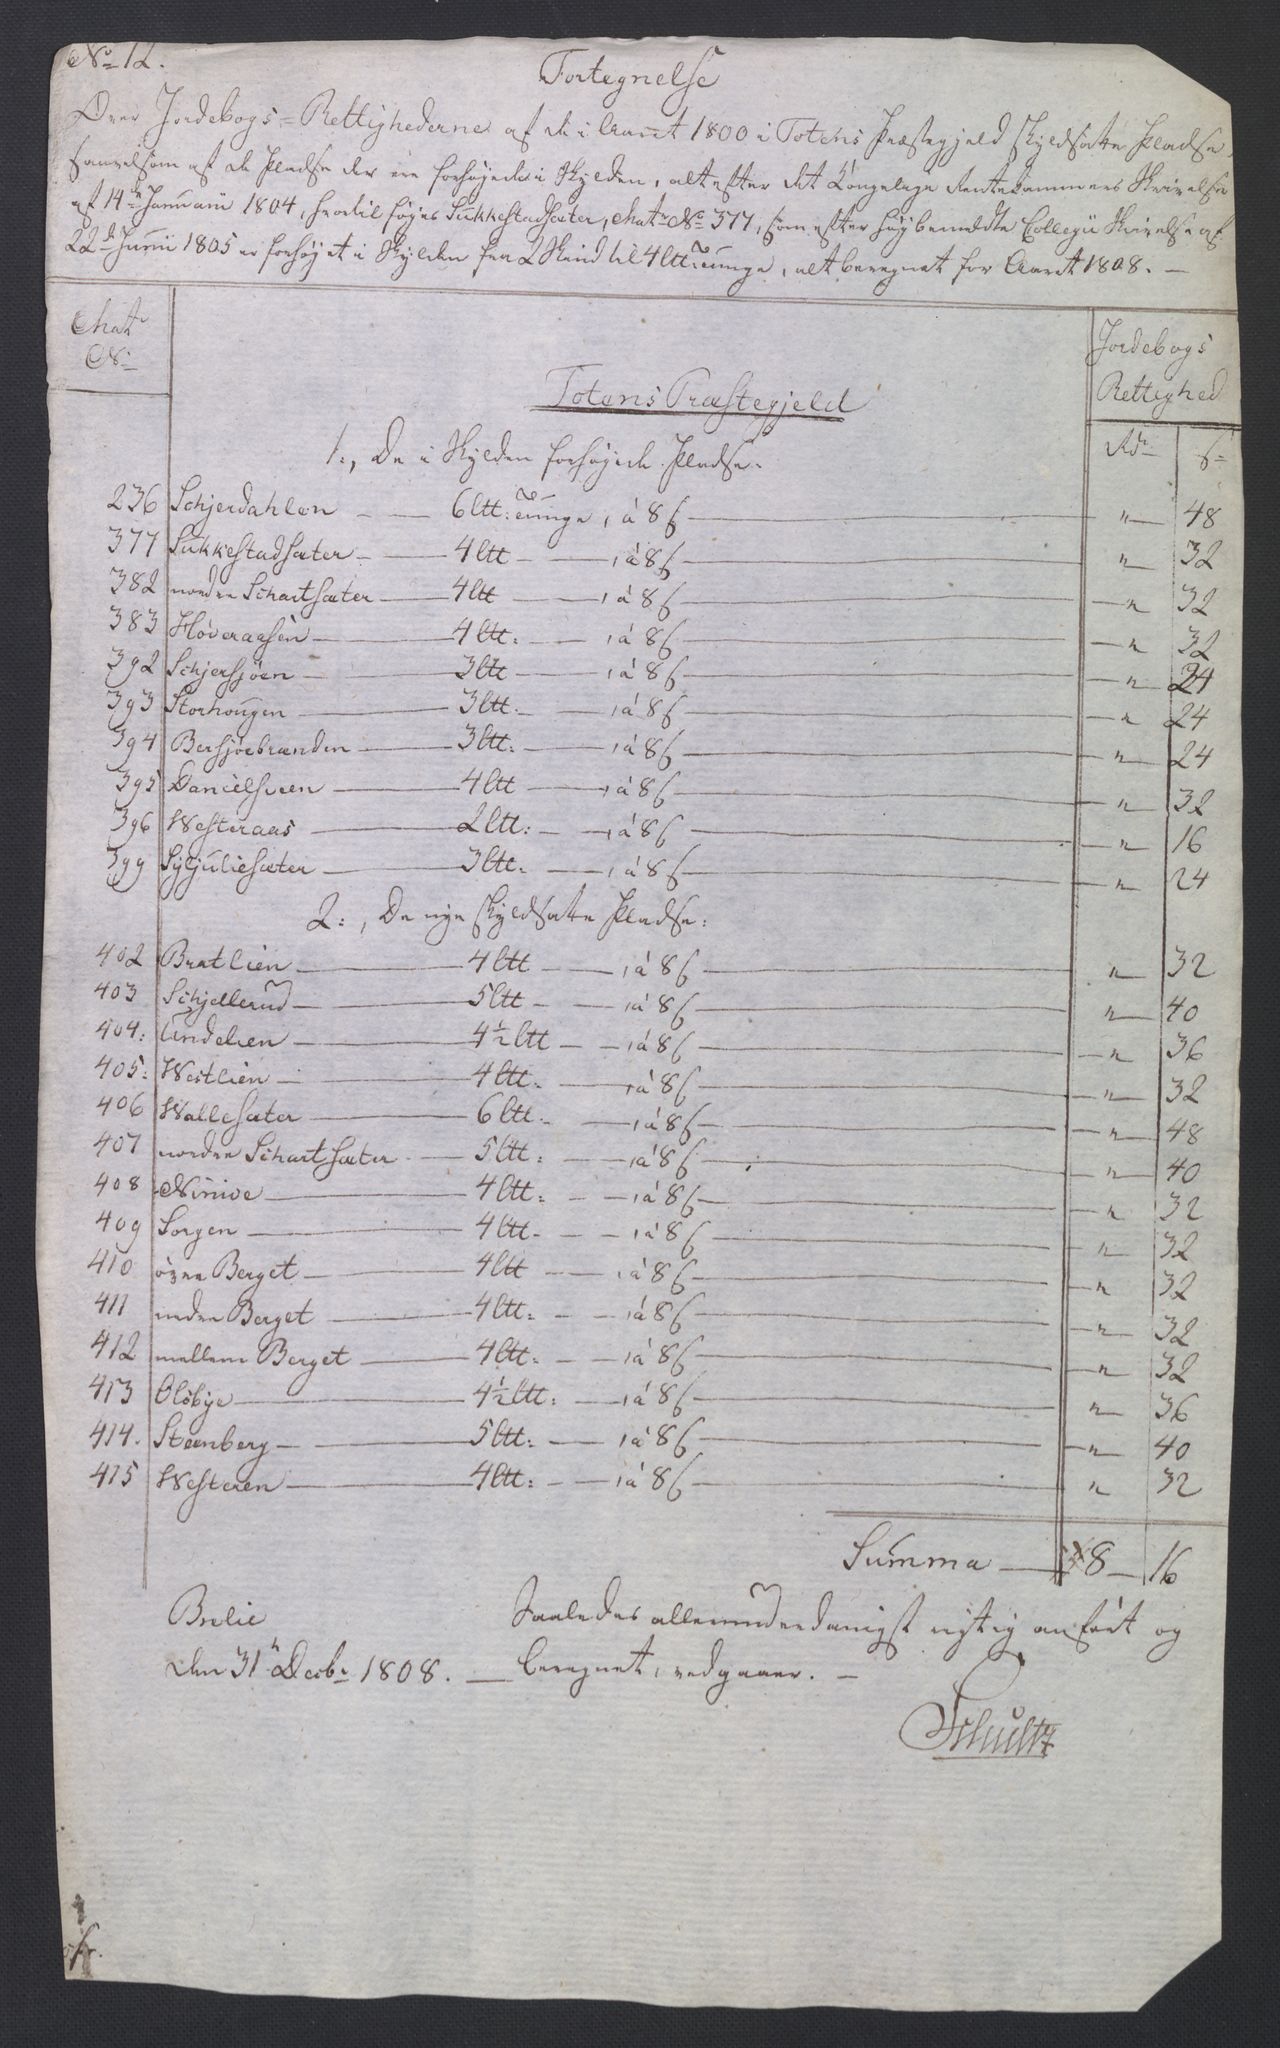 No 12.
Fortegnelse
Over Jordebogs-Rettighederne af de i Aaret 1800 i Totens Præstegjeld skyldsatte Pladse,
saavelsom af de Pladse der ere forhøyede i Skylden, alt efter det Kongelige Rentekammers Skrivelse
af 14de Januarii 1804, hvortil føyes Sukkestadsæter, Matr No 377, som efter høybemeldte Collegii Skrivelse af
22d Junii 1805 er forhøyet i Skylden fra 2 Skind til 4 ltt: Tunge, alt beregnet for Aaret 1808. —
Matr No
Jordebogs Rettighed
Totens Præstegjeld
Rdr ß
1:, De i Skylden forhøyede Pladse.
236 Schjerdahlen — 6 ltt: Tunge, à 8 ß — " — 48
377 Sukkestadsæter — 4 ltt — , à 8 ß — " — 32
382 nordre Schartsæter — 4 ltt — , à 8 ß — " — 32
383 Høveraasen — 4 ltt: — , à 8 ß — " — 32
392 Schjersjøen — 3 ltt — , à 8 ß — " — 24
393 Storhougen — 3 ltt. — , à 8 ß — " — 24
394 Bersjøebrænden — 3 ltt: — , à 8 ß — " — 24
395 Danielsveen — 4 ltt — , à 8 ß — " — 32
396 Westeraas — 2 ltt: — , à 8 ß — " — 16
399 Syljuliesæter — 3 ltt: — , à 8 ß — " — 24
2:, De nye skyldsatte Pladse:
402 Bratlien — 4 ltt — , à 8 ß — " — 32
403 Schjellerud — 5 ltt — , à 8 ß — " — 40
404: Lindelien — 4 1/2 ltt — , à 8 ß — " — 36
405: Westlien — 4 ltt. — , à 8 ß — " — 32
406 Wallesæter — 6 ltt: — , à 8 ß — " — 48
407 nordre Schartsæter — 5 ltt: — , à 8 ß — " — 40
408 Ninive — 4 ltt: — , à 8 ß — " — 32
409 Sorgen — 4 ltt. — , à 8 ß — " — 32
410 øvre Berget — 4 ltt — , à 8 ß — " — 32
411 nedre Berget — 4 ltt: — , à 8 ß — " — 32
412 mellem Berget — 4 ltt: — , à 8 ß — " — 32
413 Olsbye — 4 1/2 ltt: — , à 8 ß — " — 36
414. Steenberg — 5 ltt: — , à 8 ß — " — 40
415 Westeren — 4 ltt: — , à 8 ß — " — 32
Summa — 8 — 16
Brelie Saaledes allerunderdanigst rigtig anført og
den 31te Decbr 1808. — beregnet, vedgaaer. —
Schultz